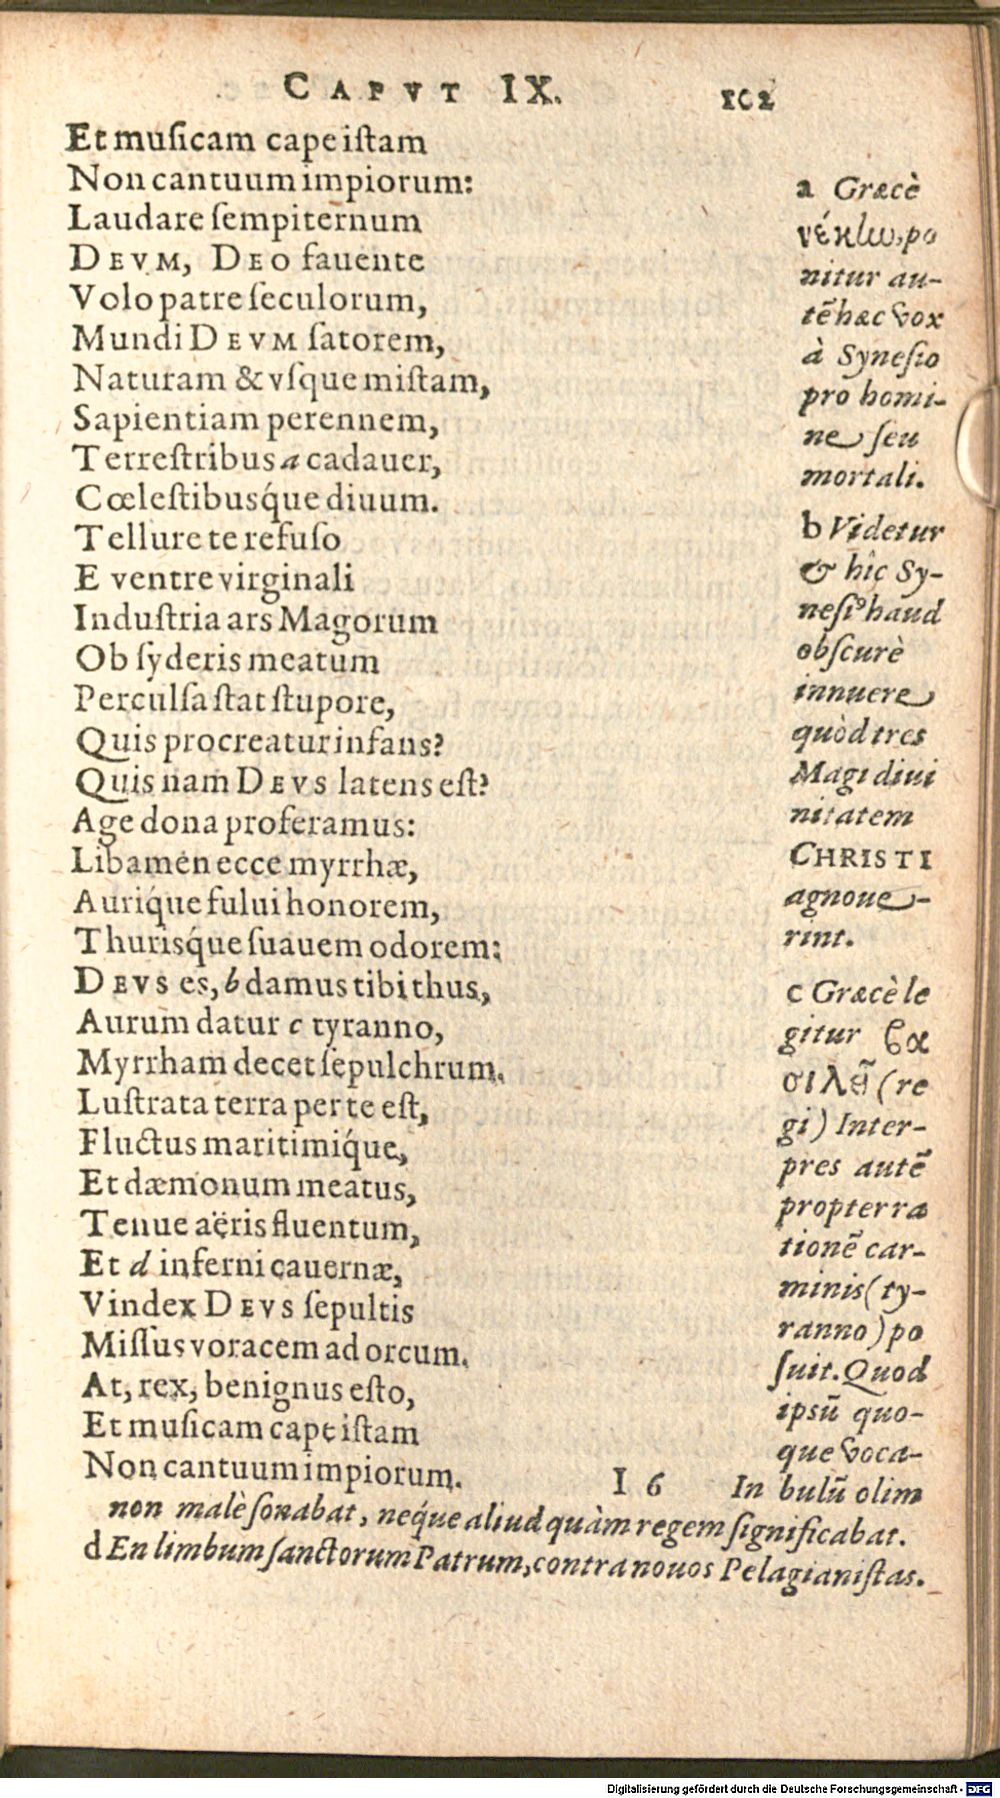 CAPVT IX. 102
Et musicam cape istam
Non cantuum impiorum:
Laudare sempiternum
DEVM, DEO fauente
Volo patre seculorum,
Mundi DEVM satorem,
Naturam & vsque mistam,
Sapientiam perennem,
Terrestribus a cadauer,
Cœlestibusq́ue diuum.
Tellure te refuso
E ventre virginali
Industria ars Magorum
Ob syderis meatum
Perculsa stat stupore,
Quis procreatur infans?
Quis nam DEVS latens est?
Age dona proferamus:
Libamen ecce myrrhæ,
Auriq́ue fului honorem,
Thurisq́ue suauem odorem:
DEVS es, b damus tibi thus,
Aurum datur c tyranno,
Myrrham decet sepulchrum.
Lustrata terra per te est,
Fluctus maritimiq́ue,
Et dæmonum meatus,
Tenue aëris fluentum,
Et d inferni cauernæ,
Vindex DEVS sepultis
Missus voracem ad orcum.
At, rex, benignus esto,
Et musicam cape istam
Non cantuum impiorum.
a Græcè
νέκυν, po
nitur au-
tē hæc vox
à Synesio
pro homi-
ne seu
mortali.
b Videtur
& hîc Sy-
nesiꝰ haud
obscurè
innuere
quòd tres
Magi diui
nitatem
CHRISTI
agnoue-
rint.
c Græcè le
gitur βα
σιλεῖ (re
gi) Inter-
pres autē
propter ra
tionē car-
minis (ty-
ranno) po
suit. Quod
ipsū quo-
que voca-
bulū olim
I 6 In
non malè sonabat, neq́ue aliud quàm regem significabat.
d En limbum sanctorum Patrum, contra nouos Pelagianistas.
Digitalisierung gefördert durch die Deutsche Forschungsgemeinschaft - DFG